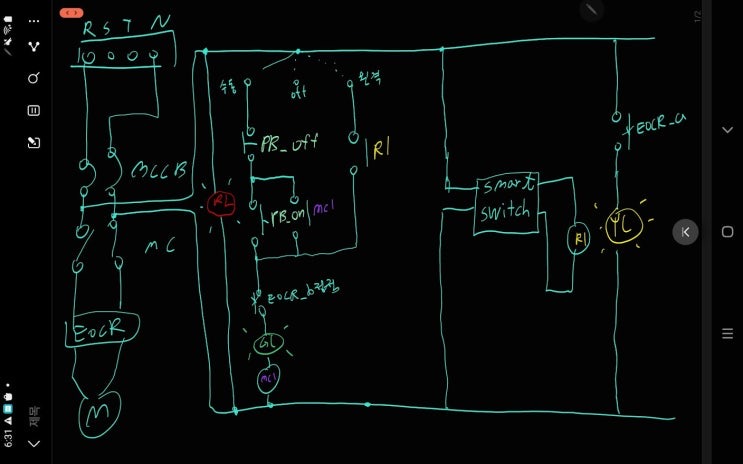 1/2
R S T N
수동
off
원격
EOCR_a
PB_off
R1
MCCB
smart
switch
RL
PB_on
mc1
R1
YL
MC
EOCR_b접점
EOCR
GL
mc1
M
6:31
제목